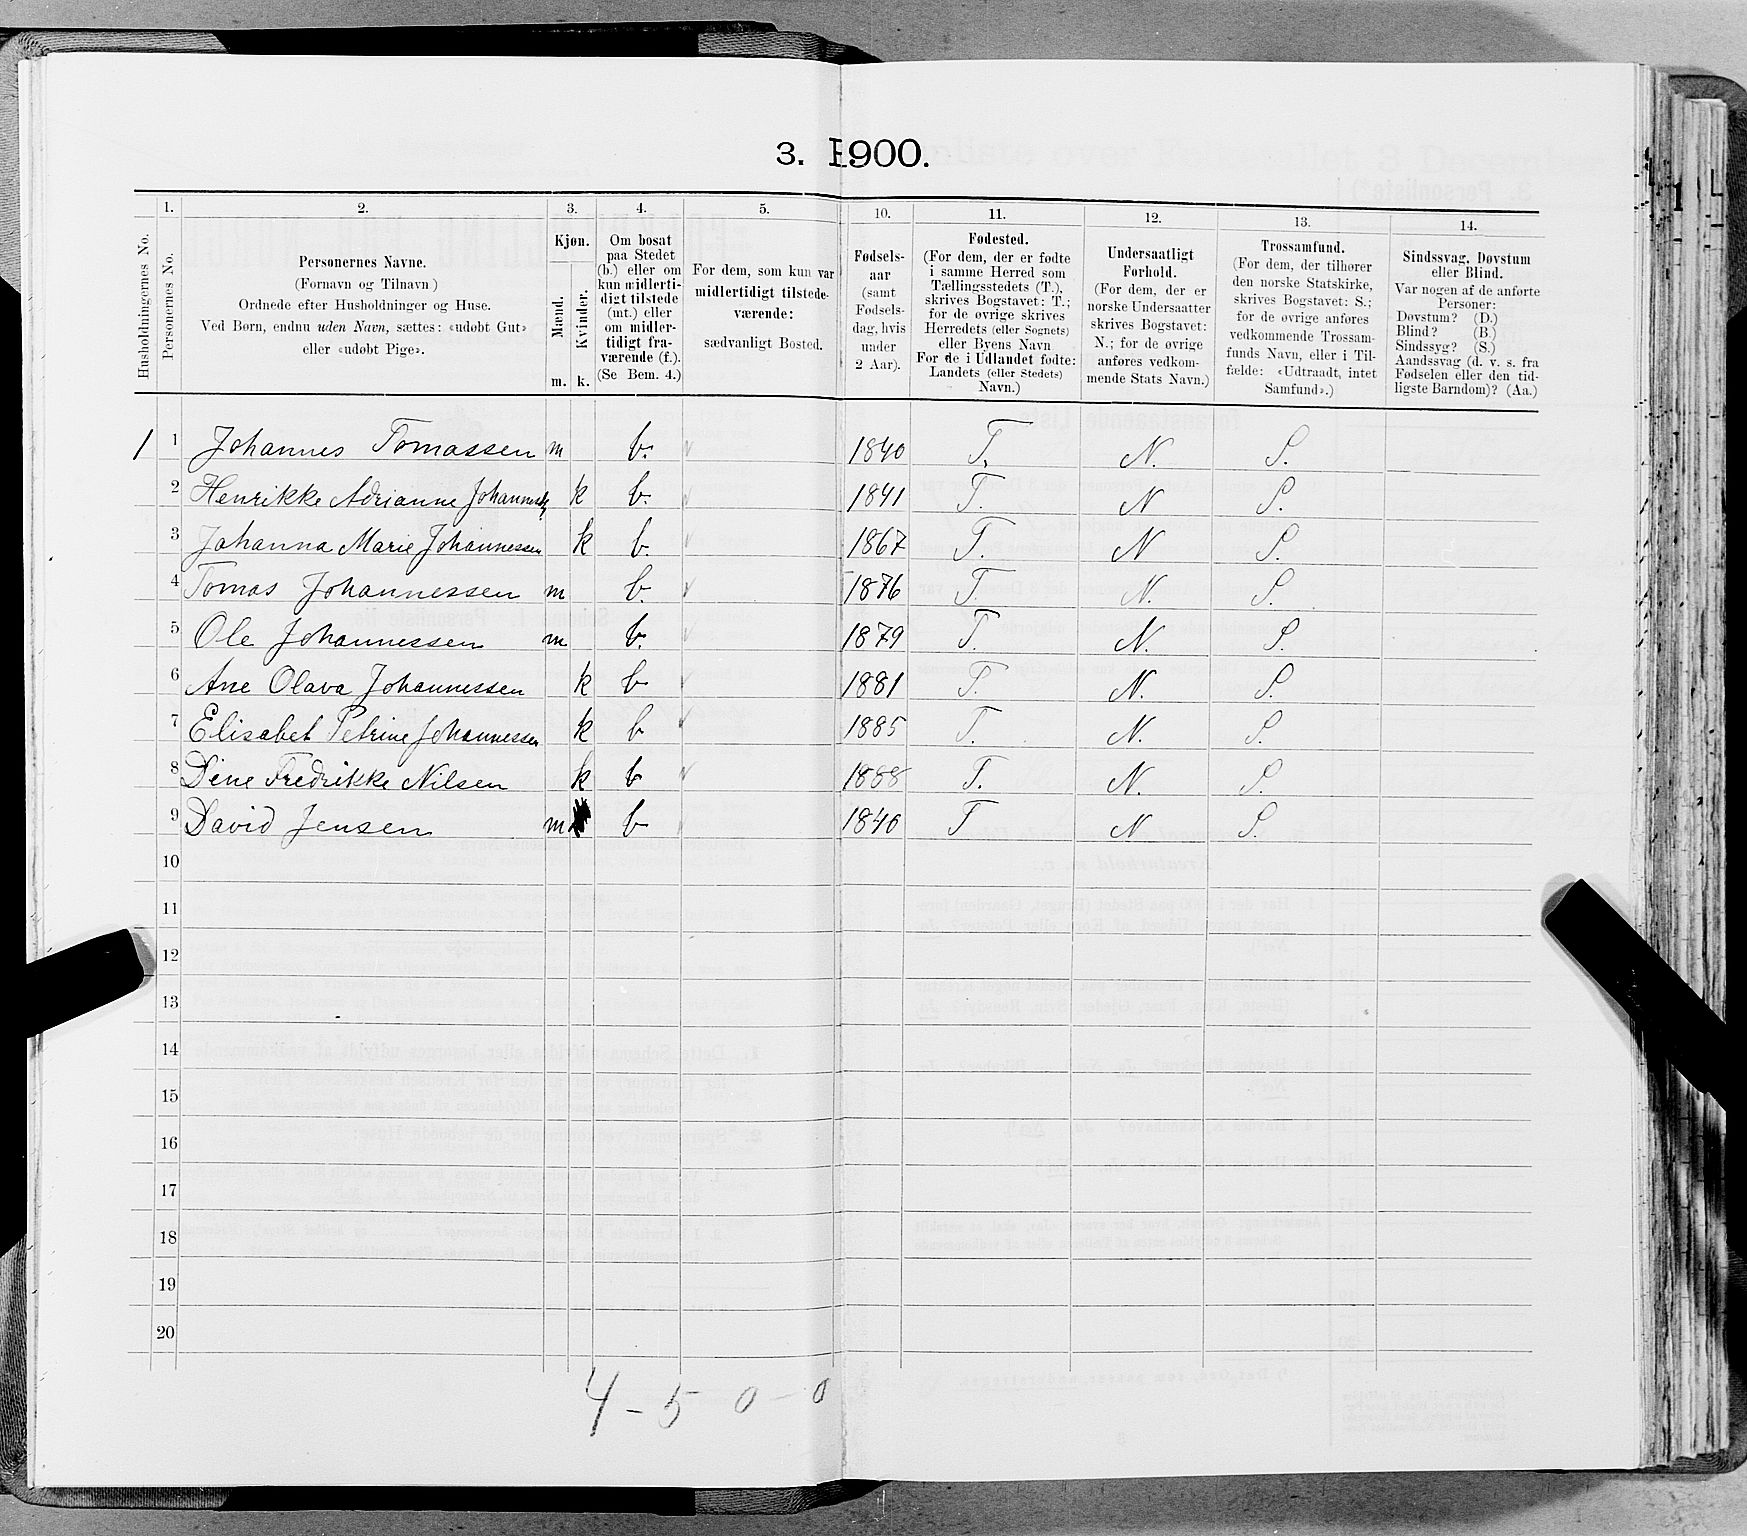 3. 1900.
1. 2. 3. 4. 5. 10. 11. 12. 13. 14.
Husholdningernes No.
Personernes No.
Personernes Navne.
(Fornavn og Tilnavn)
Ordnede efter Husholdninger og Huse.
Ved Børn, endnu uden Navn, sættes: «udøbt Gut»
eller «udøbt Pige».
Kjøn.
Mænd.
m.
Kvinder.
k.
Om bosat
paa Stedet
(b.) eller om
kun midlerti-
digt tilstede
(mt.) eller
om midler-
tidigt fra-
værende (f.).
(Se Bem. 4.)
For dem, som kun var
midlertidigt tilstede-
værende:
sædvanligt Bosted.
Fødsels-
aar
(samt
Fødsels-
dag, hvis
under
2 Aar).
Fødested.
(For dem, der er fødte
i samme Herred som
Tællingsstedets (T.),
skrives Bogstavet: T.;
for de øvrige skrives
Herredets (eller Sognets)
eller Byens Navn
For de i Udlandet fødte:
Landets (eller Stedets)
Navn.)
Undersaatligt
Forhold.
(For dem, der er
norske Undersaatter
skrives Bogstavet:
N.; for de øvrige
anføres vedkom-
mende Stats Navn.)
Trossamfund.
(For dem, der tilhører
den norske Statskirke,
skrives Bogstavet: S.;
for de øvrige anføres
vedkommende Trossam-
funds Navn, eller i Til-
fælde: «Udtraadt, intet
Samfund».)
Sindssvag, Døvstum
eller Blind.
Var nogen af de anførte
Personer:
Døvstum? (D.)
Blind? (B.)
Sindssyg? (S.)
Aandssvag (d. v. s. fra
Fødselen eller den tid-
ligste Barndom)? (Aa.)
1 1 Johannes Tomassen m b. 1840 T. N. S.
2 Henrikke Adrianne Johannes k b. 1841 T. N S.
3 Johanna Marie Johannessen k b. 1867 T. N S.
4 Tomas Johannessen m b. 1876 T. N. S.
5 Ole Johannessen m b. 1879 T. N. S.
6 Ane Olava Johannessen k b 1881 T. N. S.
7 Elisabet Petrine Johannessen k b 1885 T. N. S.
8 Dine Fredrikke Nilsen k b 1888 T. N. S.
9 David Jensen m b 1840 T N S.
10
11
12
13
14
15
16
17
18
19
20
4 - 5 0 - 0